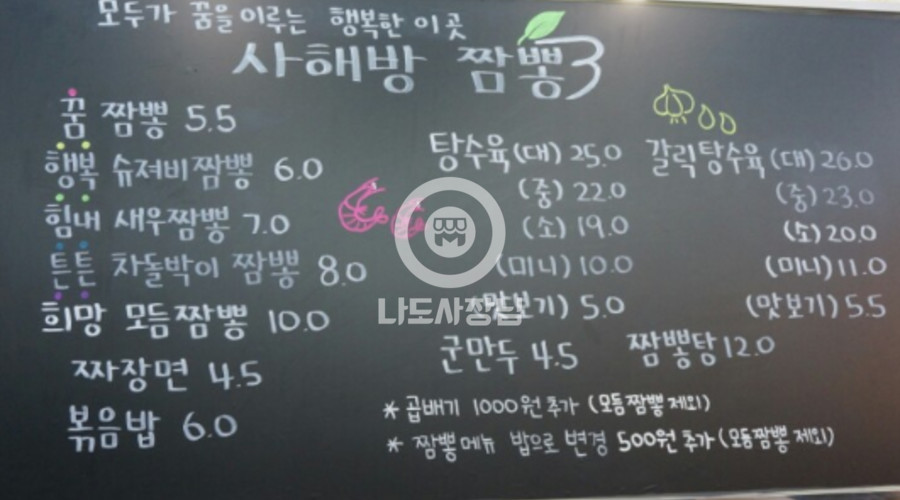 모두가 꿈을 이루는 행복한 이곳
사해방 짬뽕3
꿈 짬뽕 5.5
행복 슈져비짬뽕 6.0
힘내 새우짬뽕 7.0
튼튼 차돌박이 짬뽕 8.0
희망 모듬짬뽕 10.0
짜장면 4.5
볶음밥 6.0
탕수육(대) 25.0
(중) 22.0
(소) 19.0
(미니) 10.0
(맛보기) 5.0
갈릭탕수육(대) 26.0
(중) 23.0
(소) 20.0
(미니) 11.0
(맛보기) 5.5
군만두 4.5
짬뽕탕 12.0
* 곱배기 1000원 추가 (모듬짬뽕 제외)
* 짬뽕메뉴 밥으로 변경 500원 추가 (모듬짬뽕 제외)
나도사장님